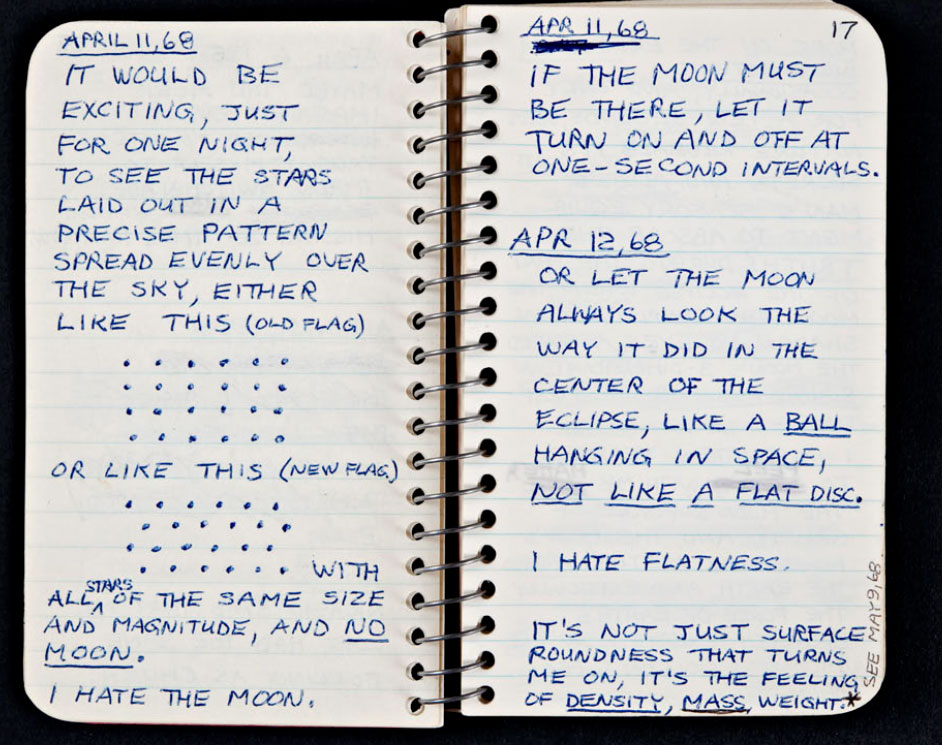 APRIL 11, 68
IT WOULD BE
EXCITING, JUST
FOR ONE NIGHT,
TO SEE THE STARS
LAID OUT IN A
PRECISE PATTERN
SPREAD EVENLY OVER
THE SKY, EITHER
LIKE THIS (OLD FLAG)
OR LIKE THIS (NEW FLAG)
WITH
ALL STARS OF THE SAME SIZE
AND MAGNITUDE, AND NO
MOON.
I HATE THE MOON.
17
APR 11, 68
IF THE MOON MUST
BE THERE, LET IT
TURN ON AND OFF AT
ONE-SECOND INTERVALS.
APR 12, 68
OR LET THE MOON
ALWAYS LOOK THE
WAY IT DID IN THE
CENTER OF THE
ECLIPSE, LIKE A BALL
HANGING IN SPACE,
NOT LIKE A FLAT DISC.
I HATE FLATNESS.
IT'S NOT JUST SURFACE
ROUNDNESS THAT TURNS
ME ON, IT'S THE FEELING
OF DENSITY, MASS, WEIGHT.*
SEE MAY 9, 68.